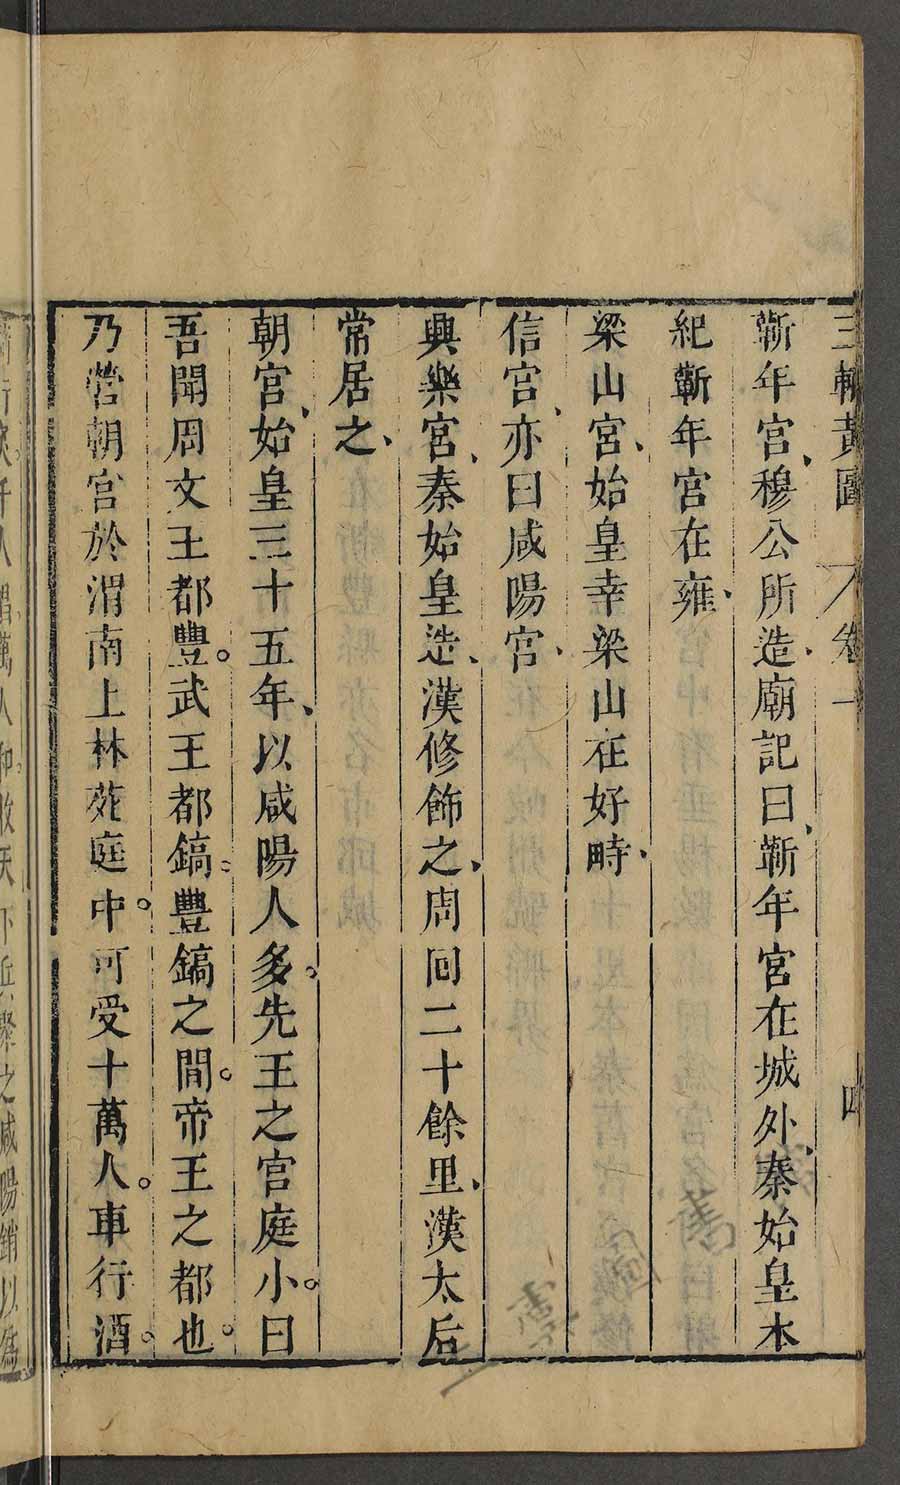 三輔黃圖 卷一 四
蘄年宮、穆公所造、廟記曰、蘄年宮在城外、秦始皇本
紀蘄年宮在雍、
梁山宮、始皇幸梁山在好畤、
信宮、亦曰咸陽宮、
興樂宮、秦始皇造、漢修飾之、周回二十餘里、漢太后
常居之、
朝宮、始皇三十五年、以咸陽人多。先王之宮庭小。曰
吾聞周文王都豐。武王都鎬。豐鎬之間。帝王之都也。
乃營朝宮於渭南上林苑庭中。可受十萬人。車行酒。